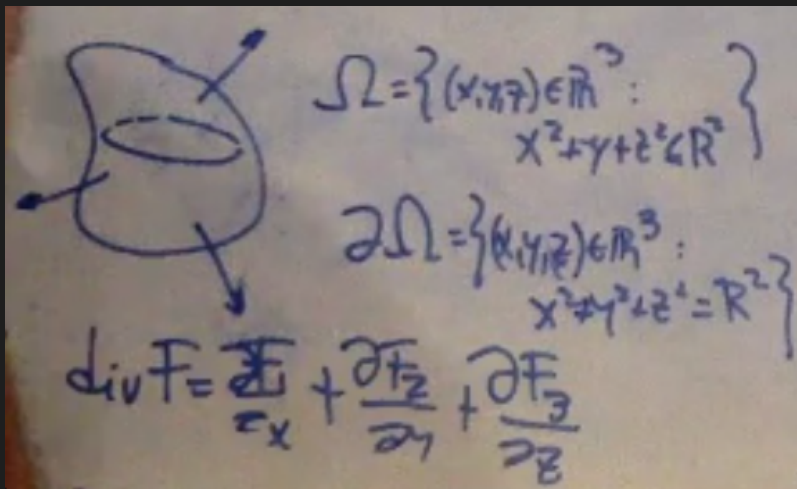 Ω={(x,y,z)∈ℝ³:
x²+y+z²≤R²}
∂Ω={(x,y,z)∈ℝ³:
x²+y²+z²=R²}
div F = ∂F₁/∂x + ∂F₂/∂y + ∂F₃/∂z